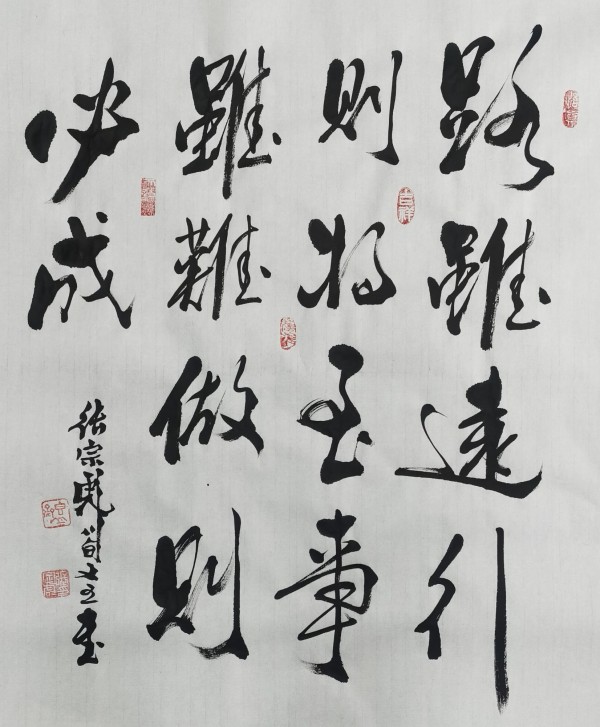 路雖遠行
則將至事
雖難做則
必成
張宗
吉祥